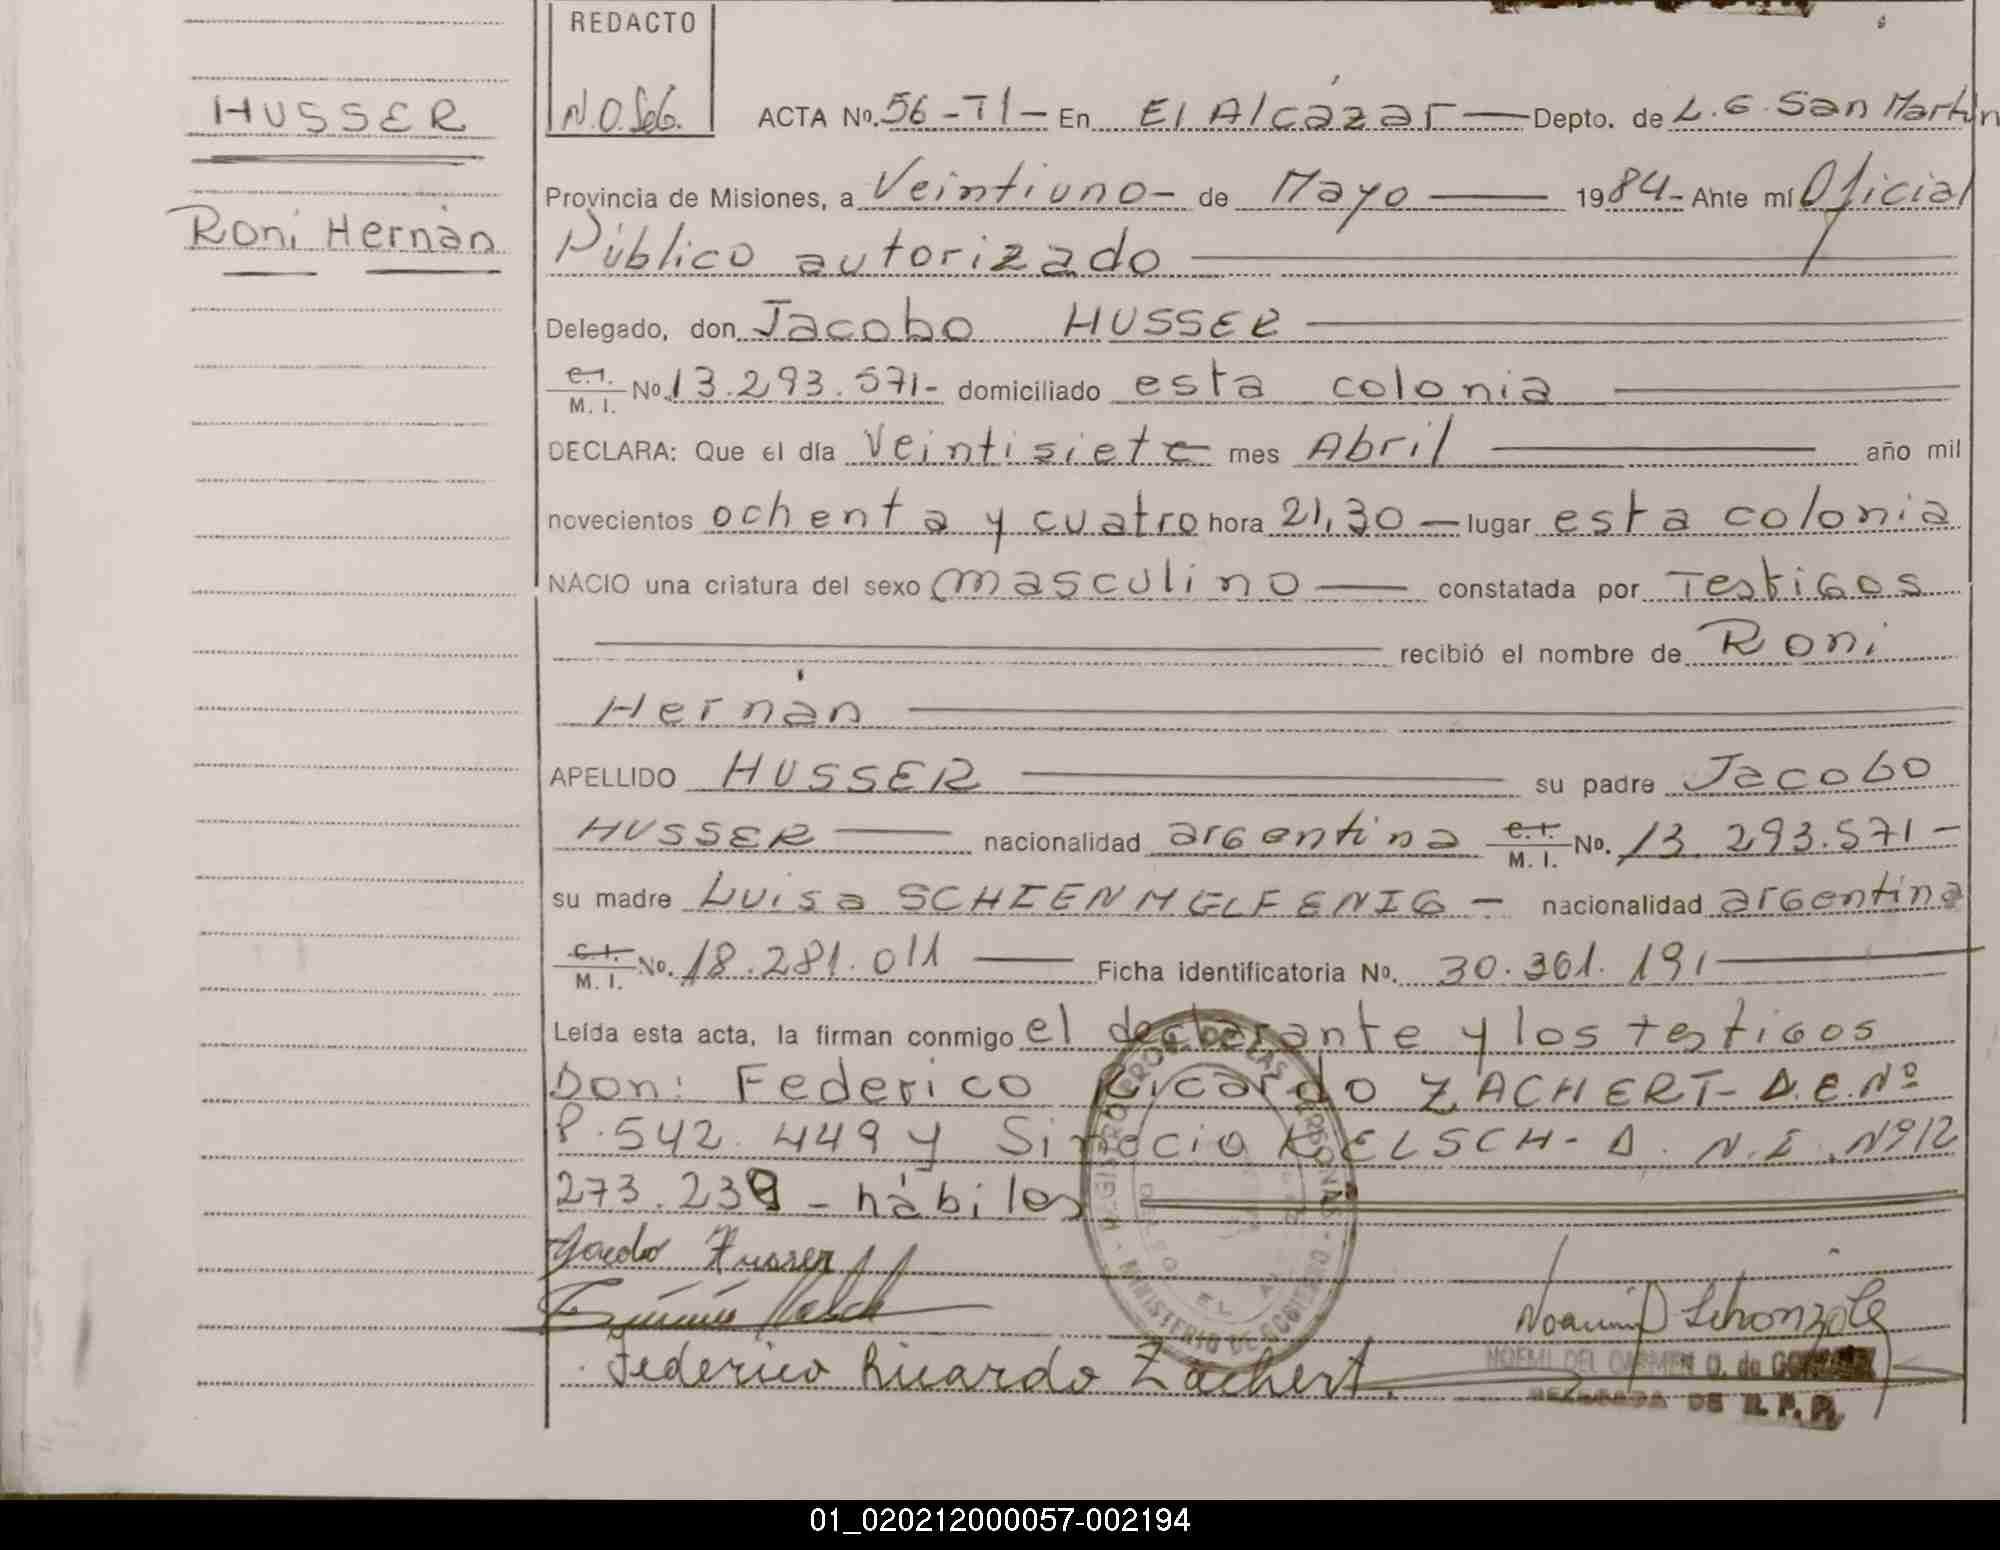 HUSSER
Roni Hernán
REDACTO
ACTA No. 56-TI- En El Alcázar — Depto. de L.G. San Martín
Provincia de Misiones, a Veintiuno- de Mayo — 1984- Ante mí Oficial
Público autorizado
Delegado, don Jacobo HUSSER
C.I. M.I. No. 13.293.571- domiciliado esta colonia
DECLARA: Que el día Veintisiete mes Abril — año mil
novecientos ochenta y cuatro hora 21,30 — lugar esta colonia
NACIO una criatura del sexo masculino — constatada por Testigos
recibió el nombre de Roni
Hernán
APELLIDO HUSSER — su padre Jacobo
HUSSER — nacionalidad argentina C.I. M.I. No. 13.293.571-
su madre Luisa SCHIENMELFENIG - nacionalidad argentina
C.I. M.I. No. 18.281.011 — Ficha identificatoria No. 30.361.191
Leída esta acta, la firman conmigo el declarante y los testigos
Don: Federico Ricardo ZACHERT- D.E.Nº
8.542.449 y Simecio KELSCH- D.N.I. Nº 12
273.239 - hábiles
Jacobo Husser
Federico Ricardo Zachert.
NOEMI DEL CARMEN O. de
DELEGADA DE R. P. P.
REGISTRO DE LAS PERSONAS
MINISTERIO DE GOBIERNO
01_020212000057-002194